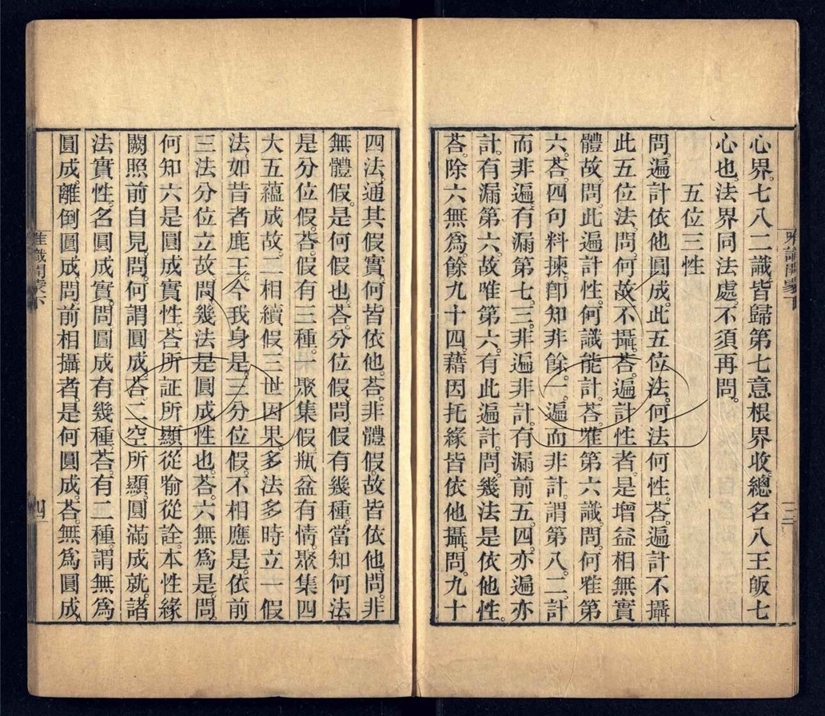 心界。七八二識皆歸第七意根界收。總名八王皈七
心也。法界同法處。不須再問。
五位三性
問。遍計依他圓成。此五位法。何法何性。荅。遍計不攝
此五位法。問。何故不攝。荅。遍計性者。是增益相無實
體故。問。此遍計性何識能計。荅。唯第六識。問。何唯第
六。荅。四句料揀。卽知非餘。一遍而非計。謂第八。二計
而非遍。有漏第七。三非遍非計。有漏前五。四亦遍亦
計。有漏第六。故唯第六。有此遍計。問。幾法是依他性。
荅。除六無爲。餘九十四。藉因托緣。皆依他攝。問。九十
四法。通其假實。何皆依他。荅。非體假故皆依他。問。非
無體假。是何假也。荅。分位假。問。假有幾種。當知何法
是分位假。荅。假有三種。一聚集假。瓶盆有情。聚集四
大五蘊成故。二相續假。三世因果。多法多時立一假
法。如昔者鹿王。今我身是。三分位假。不相應是。依前
三法分位立故。問。幾法是圓成性也。荅。六無爲是。問。
何知六是圓成實性。荅。所証所顯。從喻從詮。本性緣
闕。照前自見。問。何謂圓成。荅。二空所顯。圓滿成就諸
法實性。名圓成實。問。圓成有幾種。荅。有二種。謂無爲
圓成。離倒圓成。問。前相攝者。是何圓成。荅。無爲圓成。
唯識開蒙下
三
四